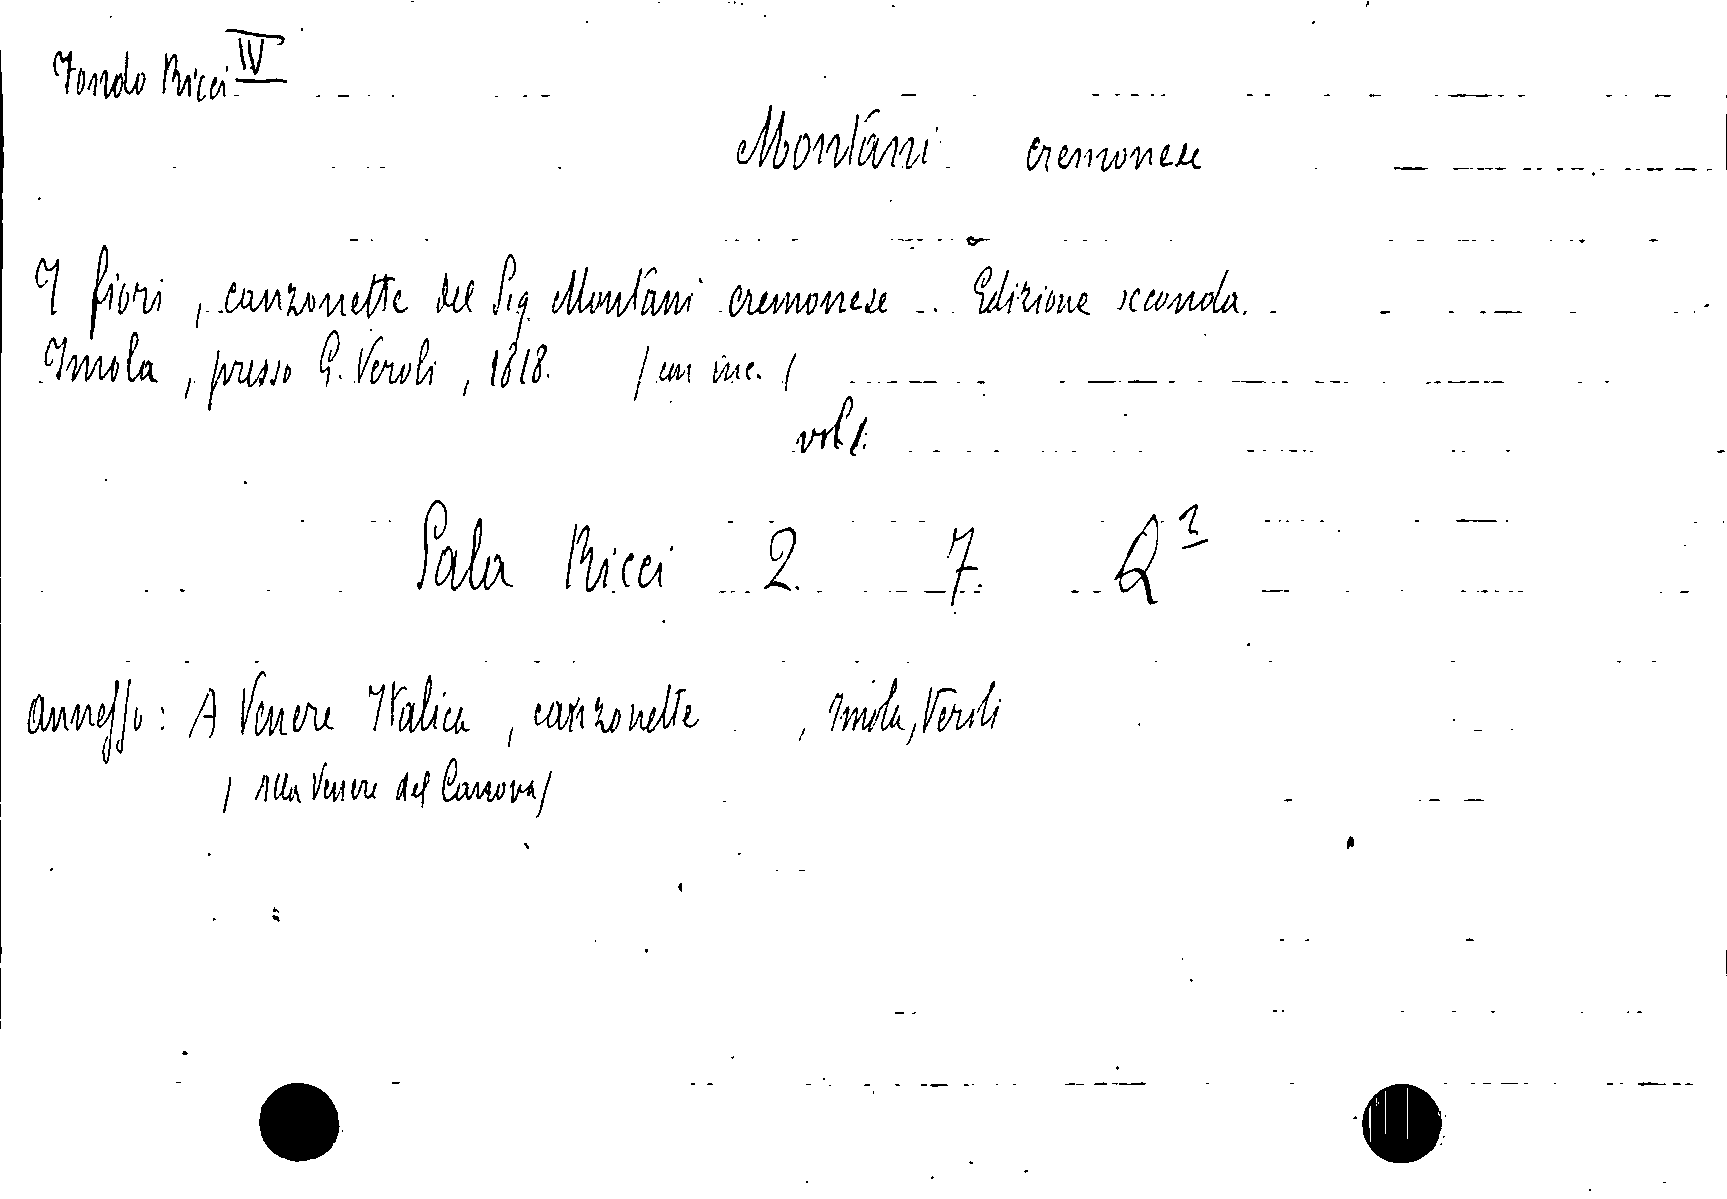 Fondo Ricci IV
Montani cremonese
I fiori, canzonette del Sig. Montani cremonese .. Edizione seconda.
Imola, presso G. Veroli, 1818. / con inc. /
vol 1.
Sala Ricci 2. 7. Q²
annesso: A Venere Italica, canzonette , Imola, Veroli
/ Alla Venere del Canova /